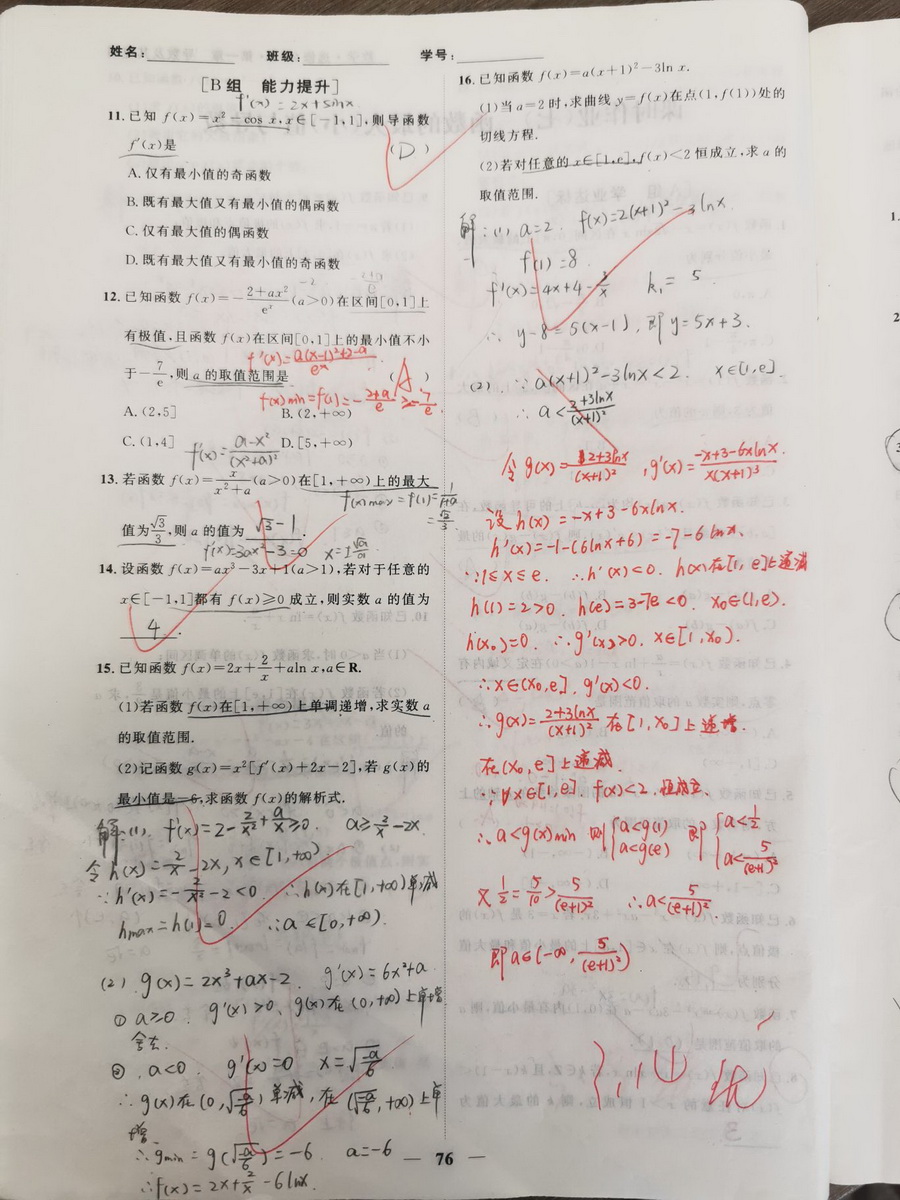 姓名： 班级： 学号：
[B组 能力提升]
f'(x)=2x+sinx
11.已知 f(x)=x²-cos x,x∈[-1,1],则导函数
f'(x)是 (D)
A.仅有最小值的奇函数
B.既有最大值又有最小值的偶函数
C.仅有最大值的偶函数
D.既有最大值又有最小值的奇函数
12.已知函数 f(x)=-(2+ax²)/eˣ(a>0)在区间[0,1]上
有极值,且函数 f(x)在区间[0,1]上的最小值不小
f'(x)=(a(x-1)²+2-a)/eˣ
于-7/e,则 a 的取值范围是 (A)
f(x)min=f(1)=-(2+a)/e≥-7/e
A.(2,5] B.(2,+∞)
C.(1,4] D.[5,+∞)
f'(x)=(a-x²)/(x²+a)²
13.若函数 f(x)=x/(x²+a)(a>0)在[1,+∞)上的最大
f(x)max=f(1)=1/(1+a)
=√3/3
值为√3/3,则 a 的值为 √3-1 .
f'(x)=3ax²-3=0 x=±√a/a
14.设函数 f(x)=ax³-3x+1(a>1),若对于任意的
x∈[-1,1]都有 f(x)≥0 成立,则实数 a 的值为
4 .
15.已知函数 f(x)=2x+2/x+aln x,a∈R.
(1)若函数 f(x)在[1,+∞)上单调递增,求实数 a
的取值范围.
(2)记函数 g(x)=x²[f'(x)+2x-2],若 g(x)的
最小值是-6,求函数 f(x)的解析式.
解:(1). f'(x)=2-2/x²+a/x≥0. a≥2/x-2x.
令h(x)=2/x-2x,x∈[1,+∞)
∵h'(x)=-2/x²-2<0 ∴h(x)在[1,+∞)单减
hmax=h(1)=0. ∴a∈[0,+∞).
(2) g(x)=2x³+ax-2. g'(x)=6x²+a.
① a≥0. g'(x)>0、g(x)在(0,+∞)上单增
舍去.
② a<0. g'(x)=0 x=√(-a/6)
∴g(x)在(0,√(-a/6))单减,在(√(-a/6),+∞)上单
增.
∴gmin=g(√(-a/6))=-6. a=-6
∴f(x)=2x+2/x-6lnx.
16.已知函数 f(x)=a(x+1)²-3ln x.
(1)当 a=2 时,求曲线 y=f(x)在点(1,f(1))处的
切线方程.
(2)若对任意的 x∈[1,e],f(x)<2 恒成立,求 a 的
取值范围.
解:(1) a=2. f(x)=2(x+1)²-3lnx.
f(1)=8.
f'(x)=4x+4-3/x k₁=5
∴ y-8=5(x-1),即y=5x+3.
(2) ∵a(x+1)²-3lnx<2. x∈[1,e]
∴a<(2+3lnx)/(x+1)²
令g(x)=(2+3lnx)/(x+1)²,g'(x)=(-x+3-6xlnx)/(x(x+1)³)
设h(x)=-x+3-6xlnx.
h'(x)=-1-(6lnx+6)=-7-6lnx.
∵1≤x≤e. ∴h'(x)<0. h(x)在[1,e]上递减
h(1)=2>0. h(e)=3-7e<0. x₀∈(1,e).
h(x₀)=0. ∴g'(x)>0. x∈[1,x₀).
∴x∈(x₀,e]. g'(x)<0.
∴g(x)=(2+3lnx)/(x+1)² 在[1,x₀]上递增.
在(x₀,e]上递减.
∵∀x∈[1,e]. f(x)<2.恒成立.
∴a<g(x)min 即{a<g(1) a<g(e) 即{a<1/2 a<5/(e+1)²
又1/2=5/10>5/(e+1)² ∴a<5/(e+1)².
即a∈(-∞,5/(e+1)²)
优
76